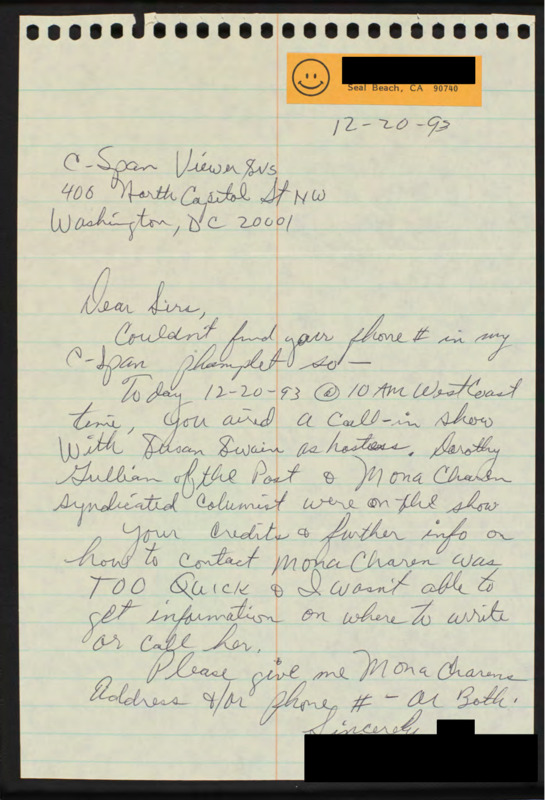 Seal Beach, CA 90740
12-20-93
C-Span Viewer Svs
400 North Capitol St NW
Washington, DC 20001
Dear Sirs,
Couldn't find your phone # in my
C-Span phamplet so —
Today 12-20-93 @ 10 AM West Coast
time, you aired a call-in show
With Susan Swain as hostess. Dorothy
Gullian of the Post & Mona Charen
syndicated columist were on the show
Your credits & further info on
how to contact Mona Charen was
TOO QUICK & I wasn't able to
get information on where to write
or call her.
Please give me Mona Charens
Address &/or phone # - or Both.
Sincerely